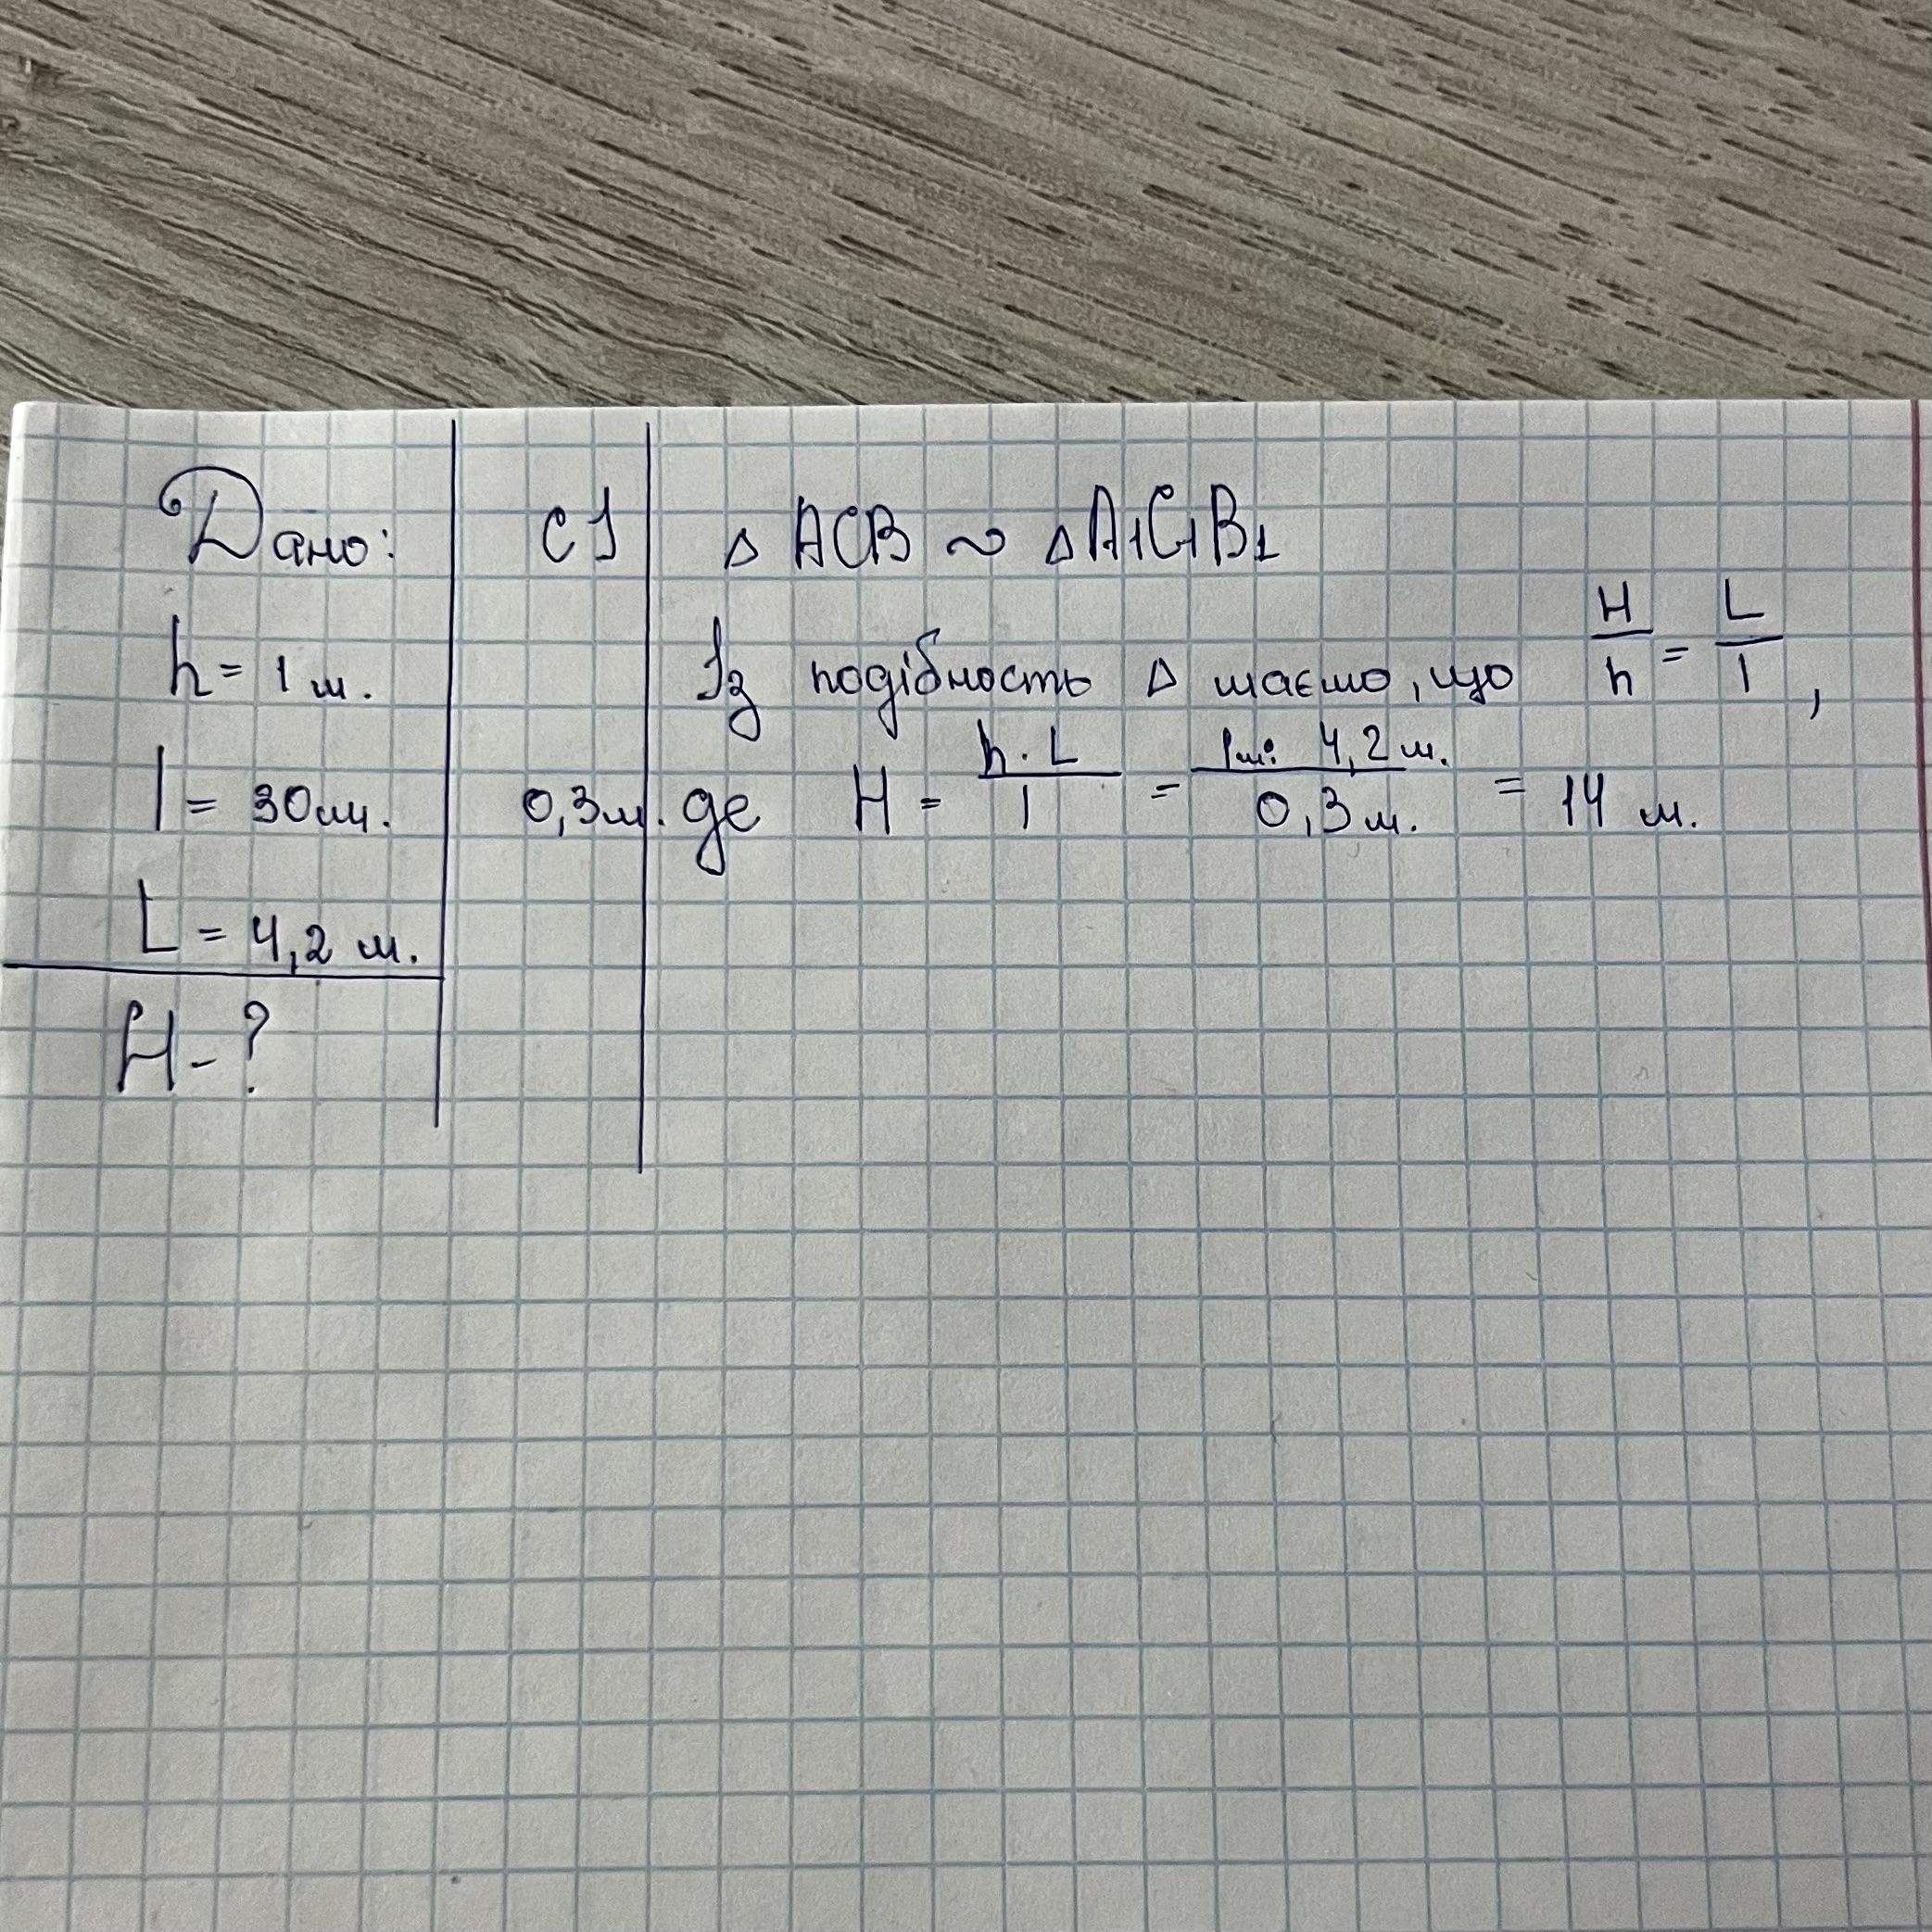 Дано:
h = 1 м.
l = 30 см.
L = 4,2 м.
H - ?
СІ
0,3 м.
△ ACB ~ △ A₁C₁B₁
Із подібность △ маємо, що H/h = L/l ,
де H = h · L / l = 1м · 4,2 м. / 0,3 м. = 14 м.